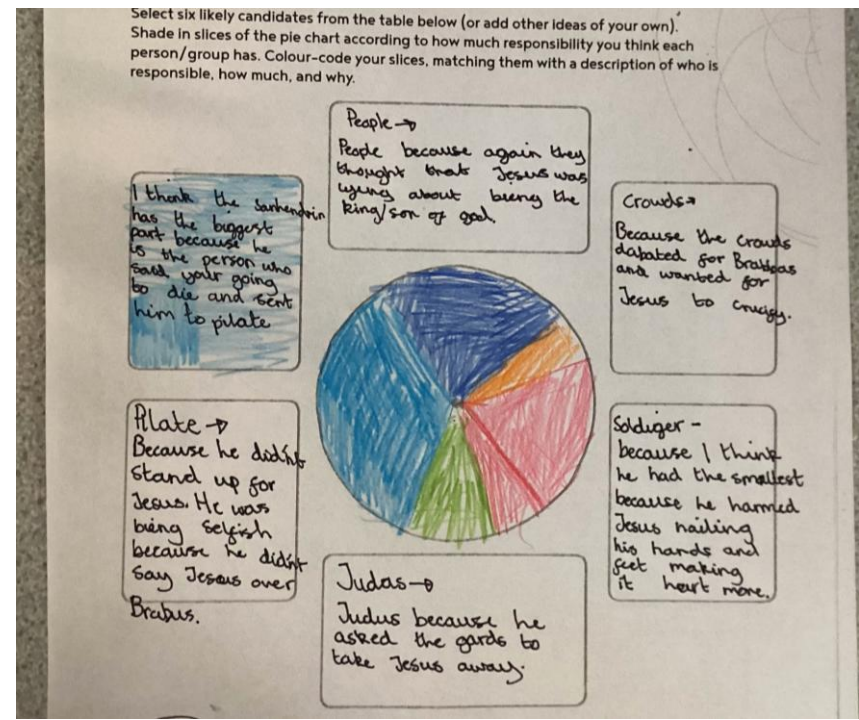 Select six likely candidates from the table below (or add other ideas of your own).
Shade in slices of the pie chart according to how much responsibility you think each
person/group has. Colour-code your slices, matching them with a description of who is
responsible, how much, and why.
People →
People because again they
thought that Jesus was
lying about being the
king/son of god.
I think the sanhendrin
has the biggest
part because he
is the person who
said your going
to die and sent
him to pilate
Crowds→
Because the crowds
for
and wanted for
Jesus to crucify.
Pilate →
Because he didn't
stand up for
Jesus. He was
being selfish
because he didn't
say Jesus over
Brabus.
Soldiger -
because I think
he had the smallest
because he harmed
Jesus nailing
his hands and
feet making
it heart more.
Judas→
Judus because he
asked the gards to
take Jesus away.